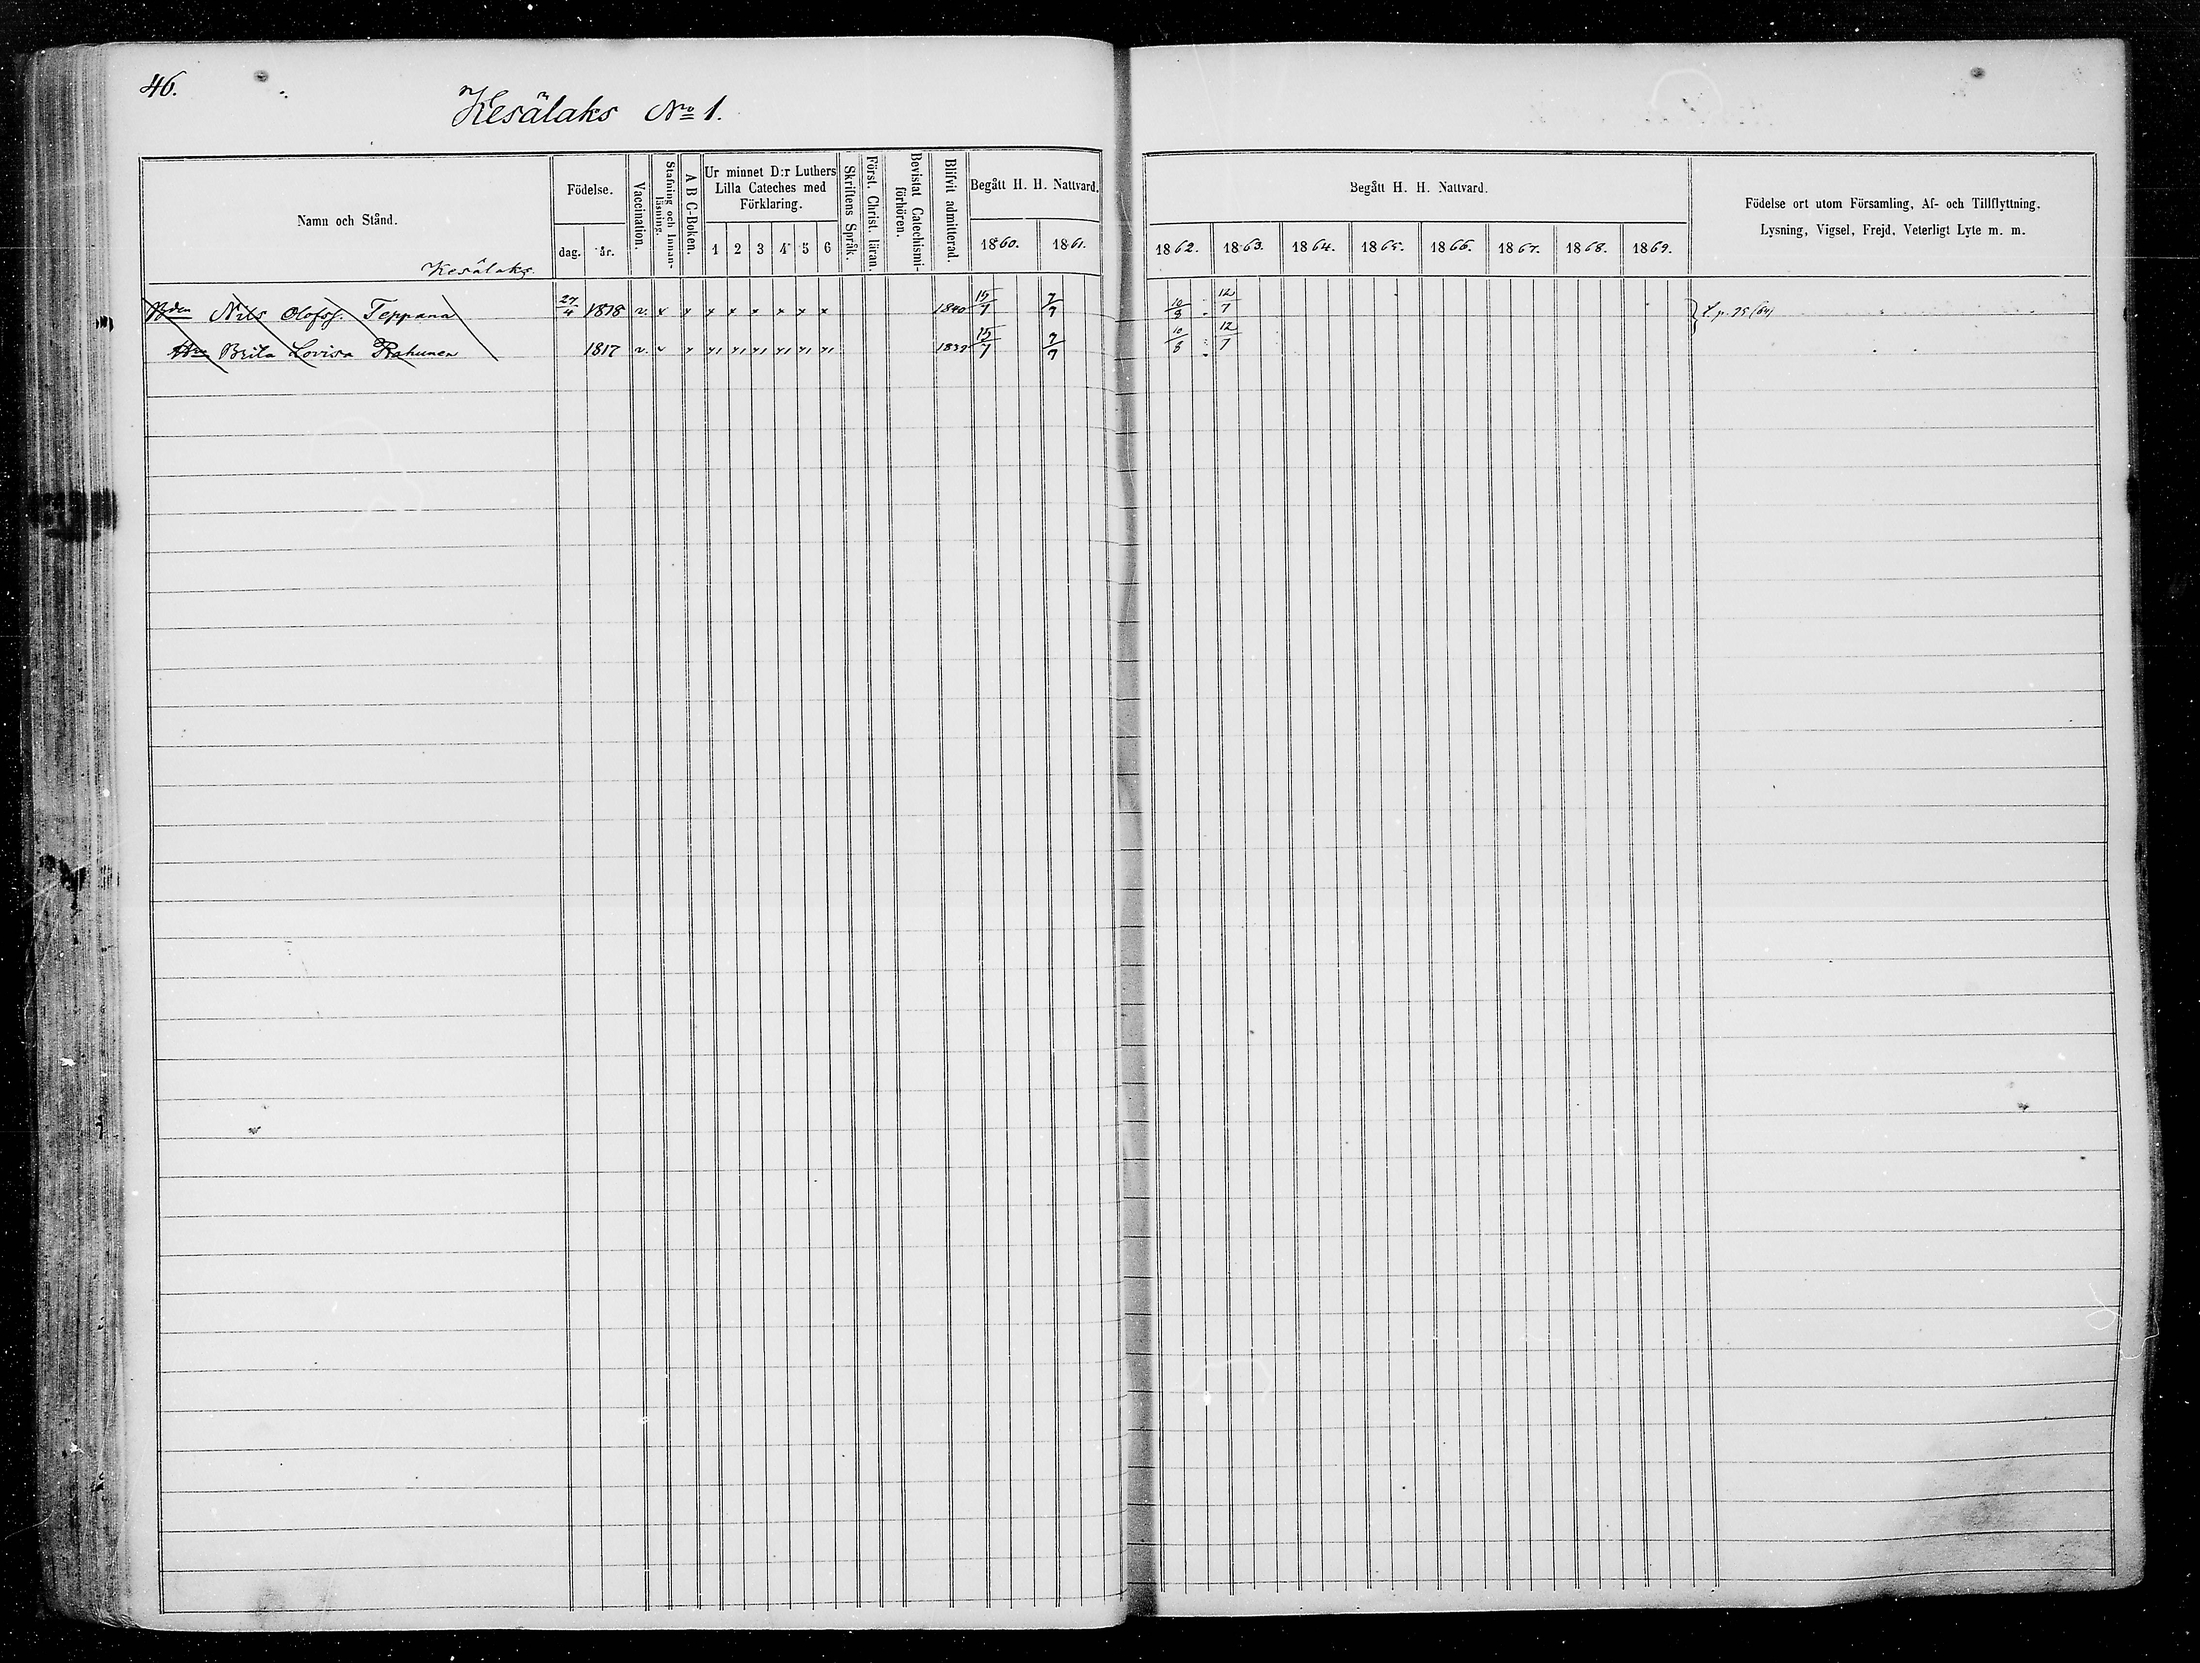 46.
Kesälaks No 1.
Namn och Stånd.
Födelse.
dag.
år.
Vaccination.
Stafning och Innan-
läsning.
A B C-Boken.
Ur minnet D:r Luthers
Lilla Cateches med
Förklaring.
1 2 3 4 5 6
Skriftens Språk.
Först. Christ. läran.
Bevistat Catechismi-
förhören.
Blifvit admitterad.
Begått H. H. Nattvard.
1860. 1861.
Begått H. H. Nattvard.
1862. 1863. 1864. 1865. 1866. 1867. 1868. 1869.
Födelse ort utom Församling, Af- och Tillflyttning.
Lysning, Vigsel, Frejd, Veterligt Lyte m. m.
Kesälaks.
Nils Olofss. Teppana 27/4 1818 v. x x x x x x x x 1840 15/7 7/7 10/8 12/7
Brita Lovisa Rahunen 1817 v. 1839 15/7 7/7 10/8 12/7